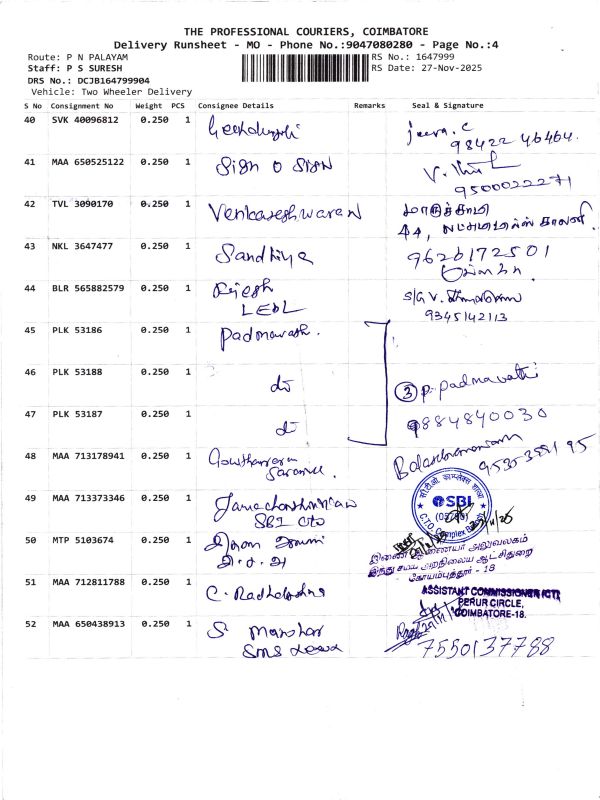 THE PROFESSIONAL COURIERS, COIMBATORE
Delivery Runsheet - MO - Phone No.:9047080280 - Page No.:4
Route: P N PALAYAM
RS No.: 1647999
Staff: P S SURESH
RS Date: 27-Nov-2025
DRS No.: DCJB164799904
Vehicle: Two Wheeler Delivery
S No Consignment No Weight PCS Consignee Details Remarks Seal & Signature
40 SVK 40096812 0.250 1 Jeeva.C
98422 46464.
41 MAA 650525122 0.250 1 Sign O Sign V.
9500022271
42 TVL 3090170 0.250 1 Venkateshwaran
44,
43 NKL 3647477 0.250 1 Sandhiya 9626172501
44 BLR 565882579 0.250 1 Rajesh S/G V.
LEDL 9345142113
45 PLK 53186 0.250 1 Padmavathi.
46 PLK 53188 0.250 1 do 3 P. Padmavathi
47 PLK 53187 0.250 1 do 9884840030
48 MAA 713178941 0.250 1 Balasubramaniam
49 MAA 713373346 0.250 1 SBI
SBI CTO
50 MTP 5103674 0.250 1
இணை ஆணையர் அலுவலகம்
இந்து சமய அறநிலைய ஆட்சிதுறை
கோயம்புத்தூர் - 18
51 MAA 712811788 0.250 1 C. Radhakrishna
ASSISTANT COMMISSIONER (CT)
PERUR CIRCLE,
COIMBATORE-18.
52 MAA 650438913 0.250 1 S. Manohar
SMS 7550137788